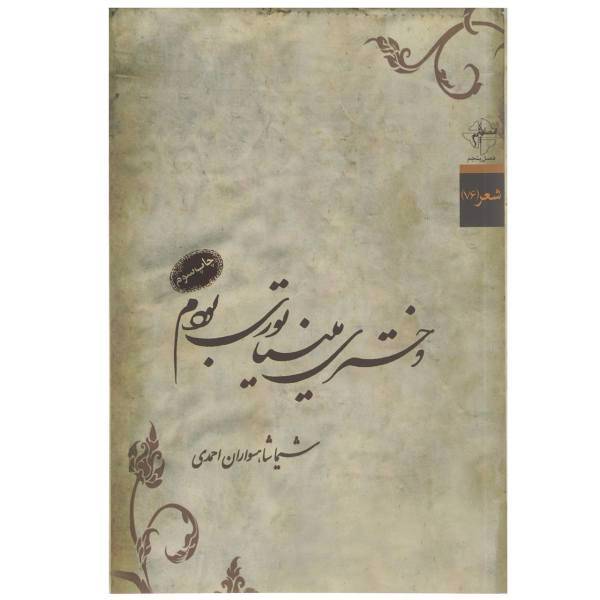 فصل پنجم
شعر (۷۶)
چاپ سوم
دختری مینیاتوری بودم
شیما شاهسواران احمدی